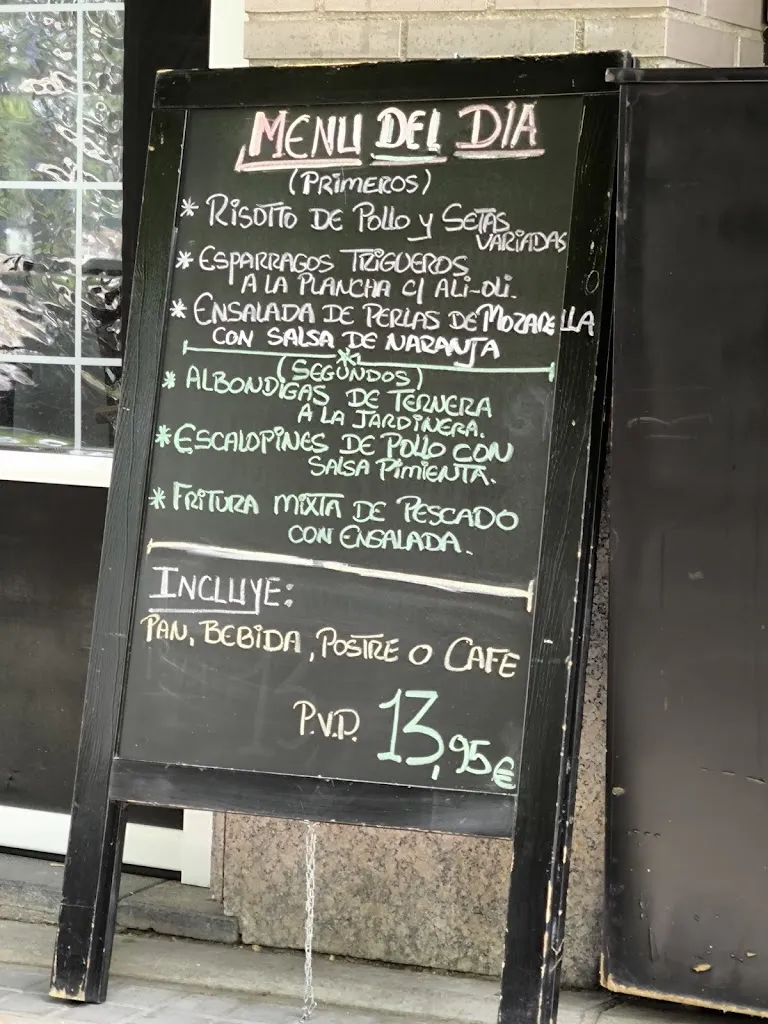 MENU DEL DIA
(PRIMEROS)
* RISOTTO DE POLLO Y SETAS
VARIADAS
* ESPARRAGOS TRIGUEROS
A LA PLANCHA C/ ALI-OLI.
* ENSALADA DE PERLAS DE MOZARELLA
CON SALSA DE NARANJA
(SEGUNDOS)
* ALBONDIGAS DE TERNERA
A LA JARDINERA.
* ESCALOPINES DE POLLO CON
SALSA PIMIENTA.
* FRITURA MIXTA DE PESCADO
CON ENSALADA.
INCLUYE:
PAN, BEBIDA, POSTRE O CAFE
P.V.P. 13,95€